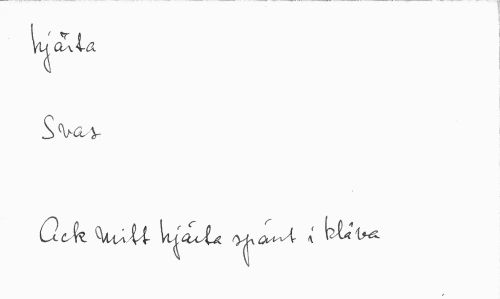 hjärta
Svas
Ack mitt hjärta spänt i kläva